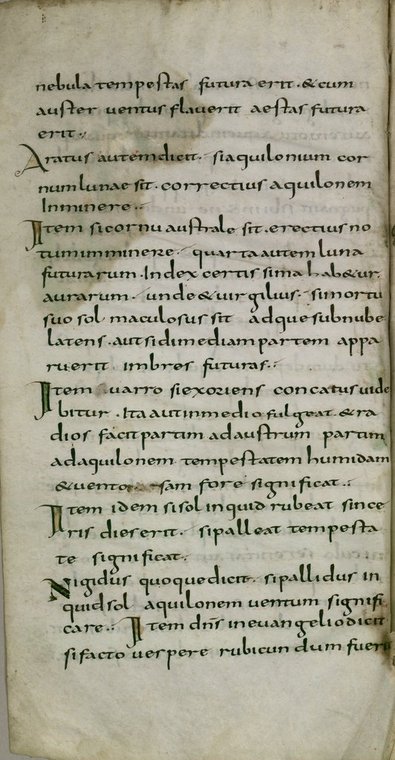 nebula tempestas futura erit · & cum
auster ventus flaverit aestas futura
erit ·,
Aratus autem dicit · si aquilonium cor
num lunae sit · correctius aquilonem
Inminere ·,
Item si cornu australe sit · erectius no
tum imminere · quarta autem luna
futurarum · Index certissima hab&ur
aurarum · unde & uirgilius · si in ortu
suo sol maculosus sit adque sub nube
latens · aut si dimediam partem appa
ruerit imbres futuras ·,
Item varro si exoriens concatus uide
bitur · Ita aut in medio fulgeat & ra
dios facit partim ad austrum partim
ad aquilonem tempestatem humidam
& vento sam fore significat ·,
Item idem si sol inquid rubeat since
ris dies erit · si palleat tempesta
te significat ·
Nigidus quoque dicit · si pallidus in
quid sol aquilonem ventum signifi
care ·, Item dns in evangelio dicit
si facto vespere rubicundum fuerit